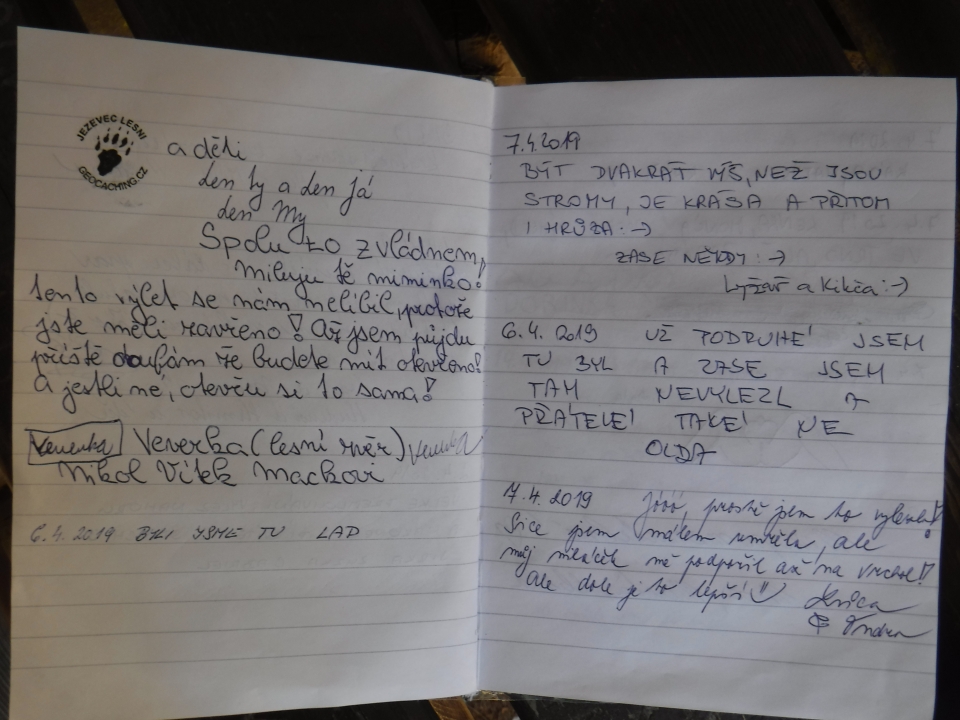 JEZEVEC LESNI
GEOCACHING.CZ
a děti
den ty a den já
den My
Spolu to zvládnem,
Miluju tě miminko!
tento výlet se nám nelíbil, protože
jste měli zavřeno! Až jsem půjdu
příště doufám že budete mít otevřeno!
A jestli né, otevřu si to sama!
Veverka Veverka (lesní zvěr) Veverka
Nikol Vítek Mackovi
6.4.2019 BYLI JSME TU LAD
7.4.2019
BÝT DVAKRÁT VÝŠ, NEŽ JSOU
STROMY, JE KRÁSA A PŘITOM
I HRŮZA :->
ZASE NĚKDY :->
Lyžař a Kikča :-)
6.4.2019 UŽ PODRUHÉ JSEM
TU BYL A ZASE JSEM
TAM NEVYLEZL A
PŘÁTELÉ TAKÉ NE
OLDA
7.4.2019 Jóóó, prostě jsem to vylezla!
Sice jsem málem umřela, ale
můj miláček mě podpořil až na vrchol!!
Ale dole je to lepší!!
&